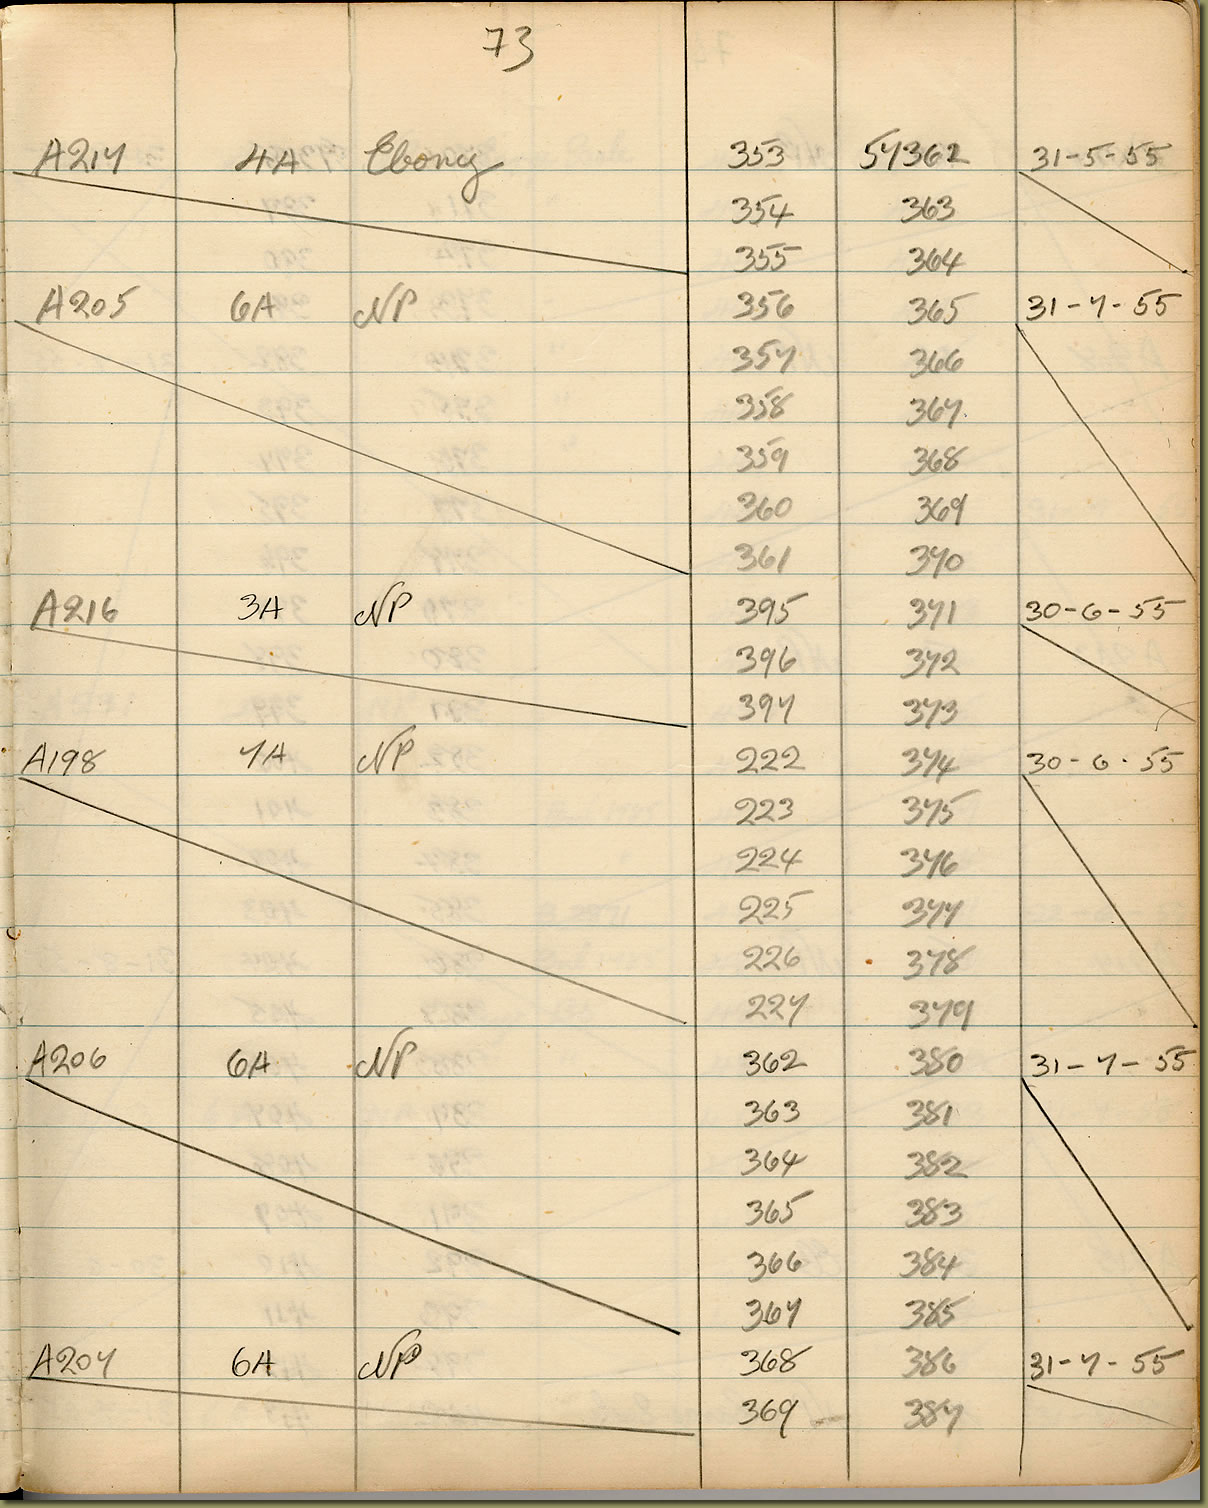 73
A217 4A Ebony 353 57362 31-5-55
354 363
355 364
A205 6A NP 356 365 31-7-55
357 366
358 367
359 368
360 369
361 370
A216 3A NP 395 371 30-6-55
396 372
397 373
A198 7A NP 222 374 30-6-55
223 375
224 376
225 377
226 378
227 379
A206 6A NP 362 380 31-7-55
363 381
364 382
365 383
366 384
367 385
A207 6A NP 368 386 31-7-55
369 387